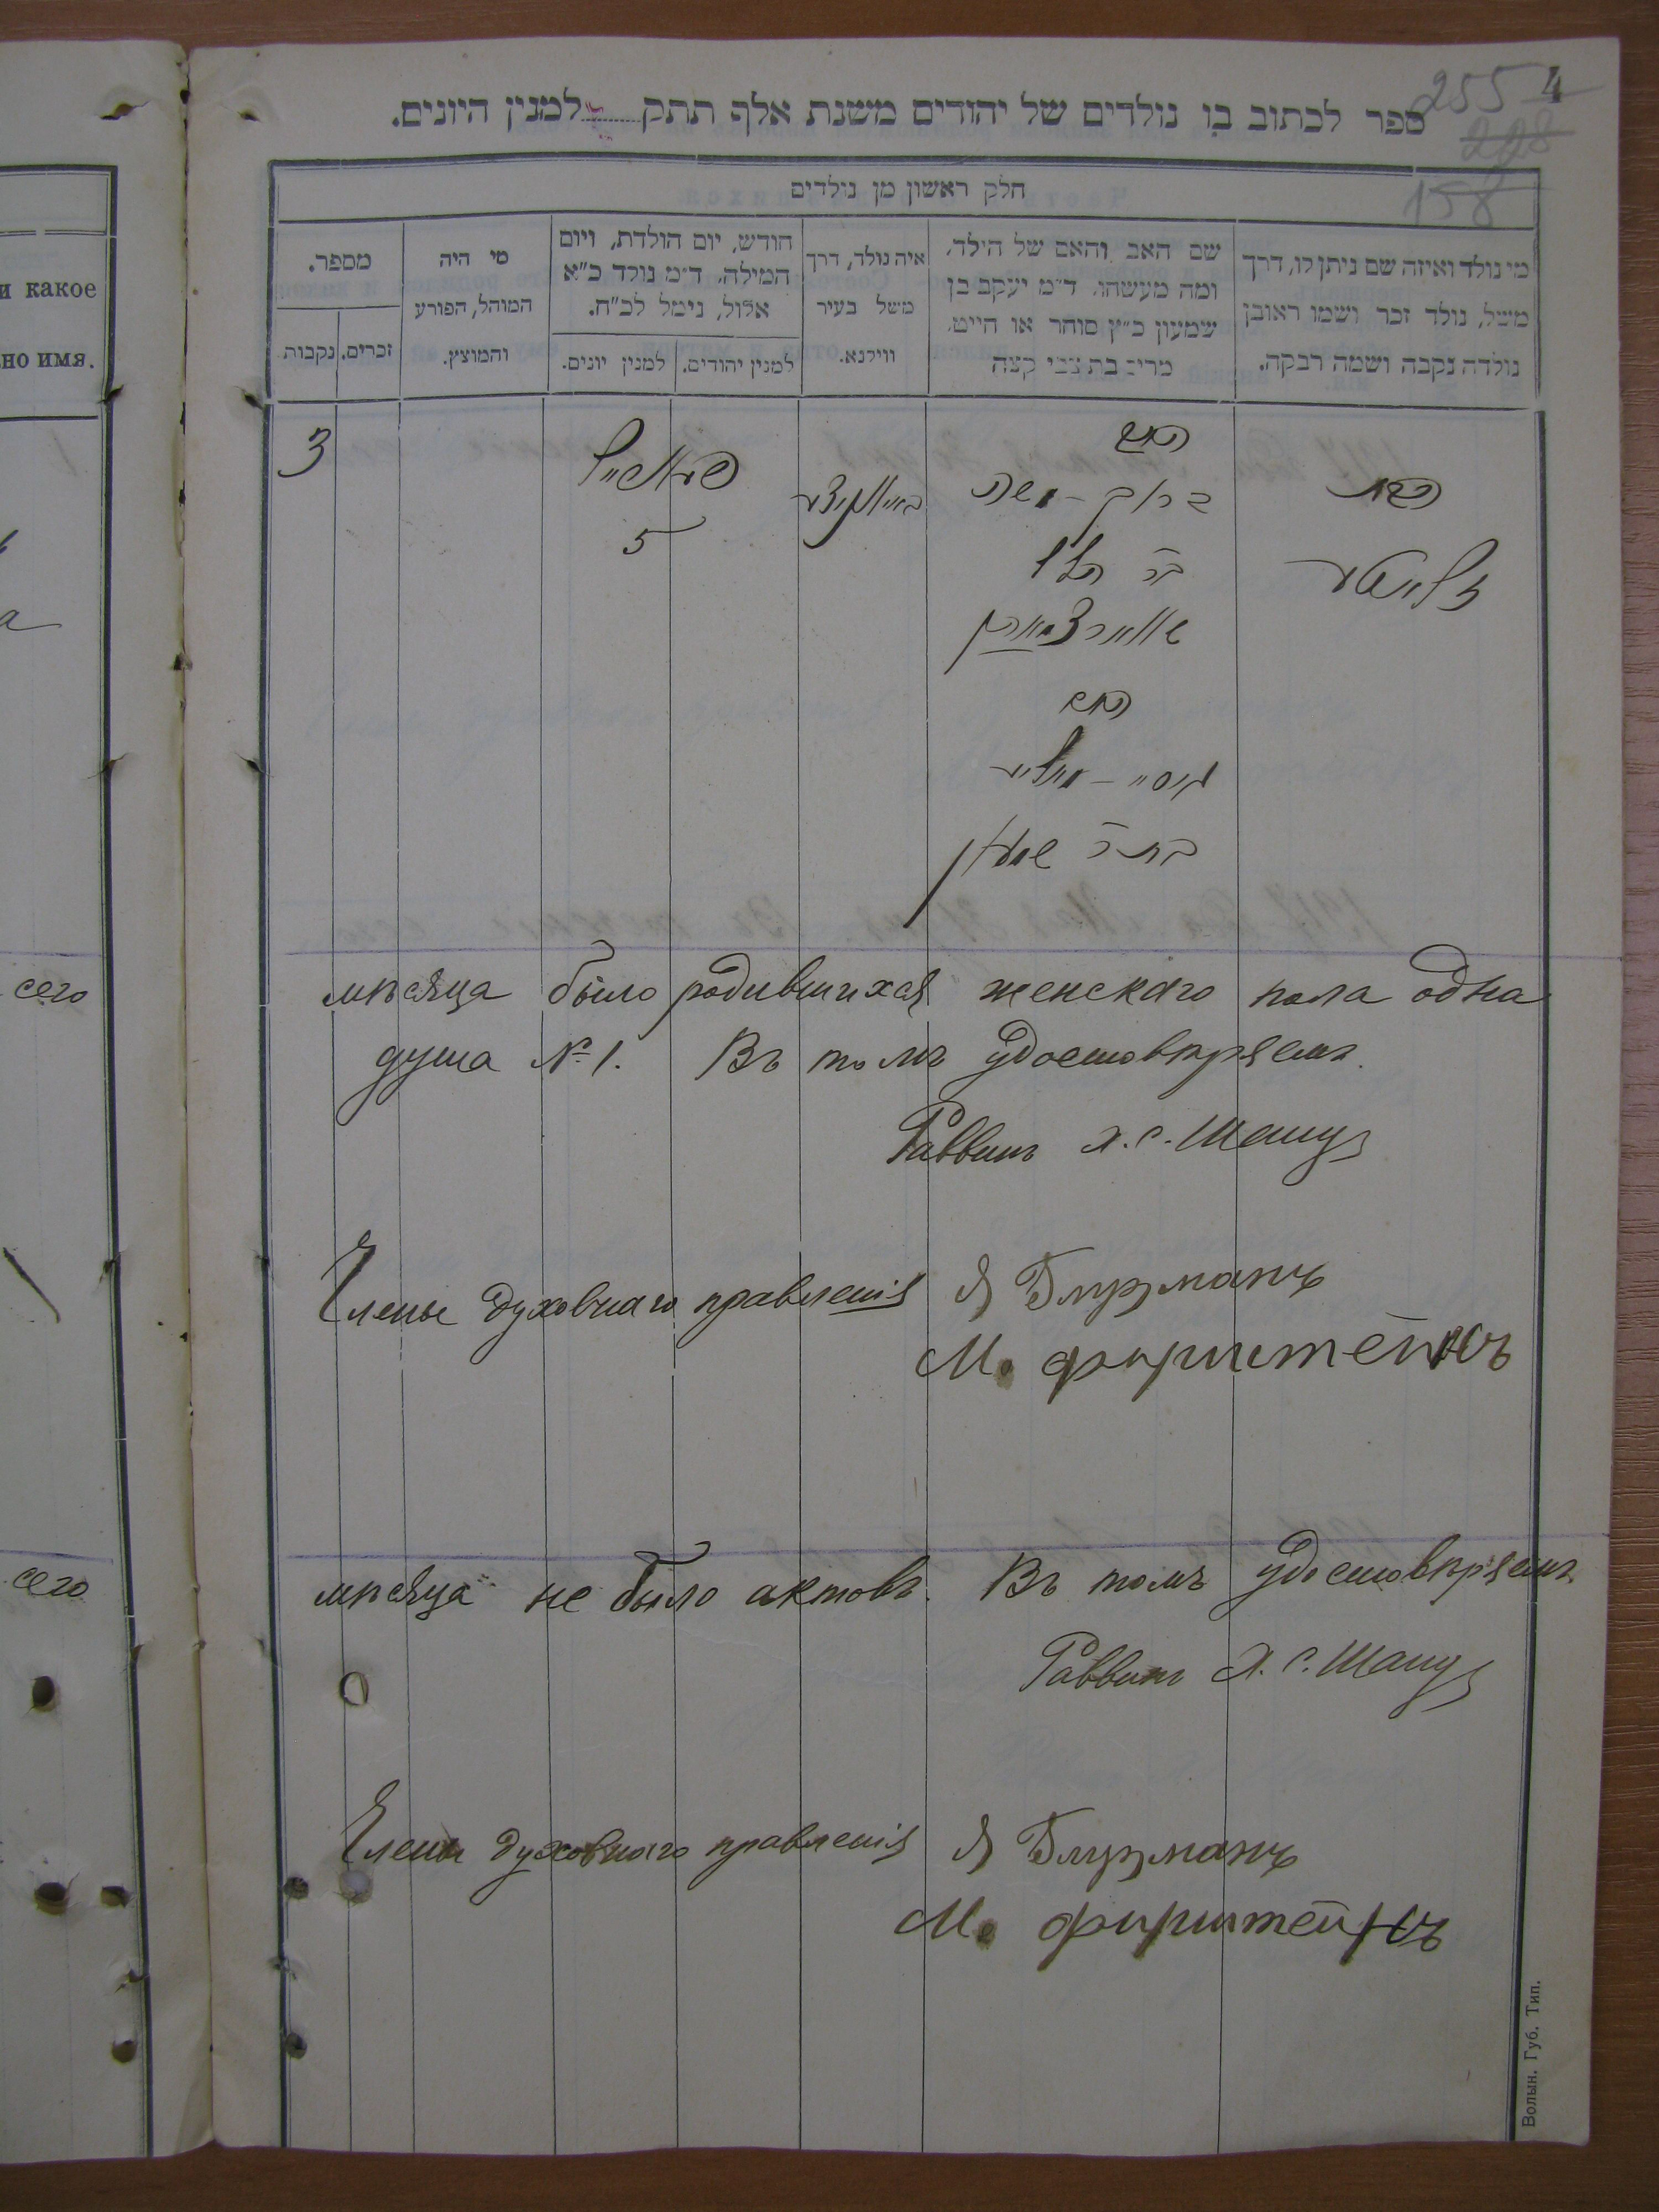 и какое
но имя.
сего
сего
4
255
228
158
ספר לכתוב בו נולדים של יהודים משנת אלף תתק למנין היונים.
חלק ראשון מן נולדים
מי נולד ואיזה שם ניתן לו, דרך
משל, נולד זכר ושמו ראובן
נולדה נקבה ושמה רבקה.
שם האב והאם של הילד,
ומה מעשהו, ד״מ יעקב בן
שמעון כ״ץ סוחר או הייט,
מרים בת צבי קצה
איה נולד, דרך
משל בעיר
ווילנא.
חודש, יום הולדת, ויום
המילה, ד״מ נולד כ״א
אלול, נימל לכ״ח.
למנין יהודים. למנין יונים.
מי היה
המוהל, הפורע
והמוצץ.
מספר.
זכרים. נקבות
3
5
האב
ברוך - משה
הבת
האם
בת ר שמעון
мѣсяца было родившихся женскаго пола одна
душа № 1. Въ томъ удостовѣряемъ.
Раввинъ Х. С.
Члены духовнаго правленія Я
М. Фирштейнъ
мѣсяца не было актовъ. Въ томъ удостовѣряемъ
Раввинъ Х. С.
Члены духовнаго правленія Я
М. Фирштейнъ
Волын. Губ. Тип.